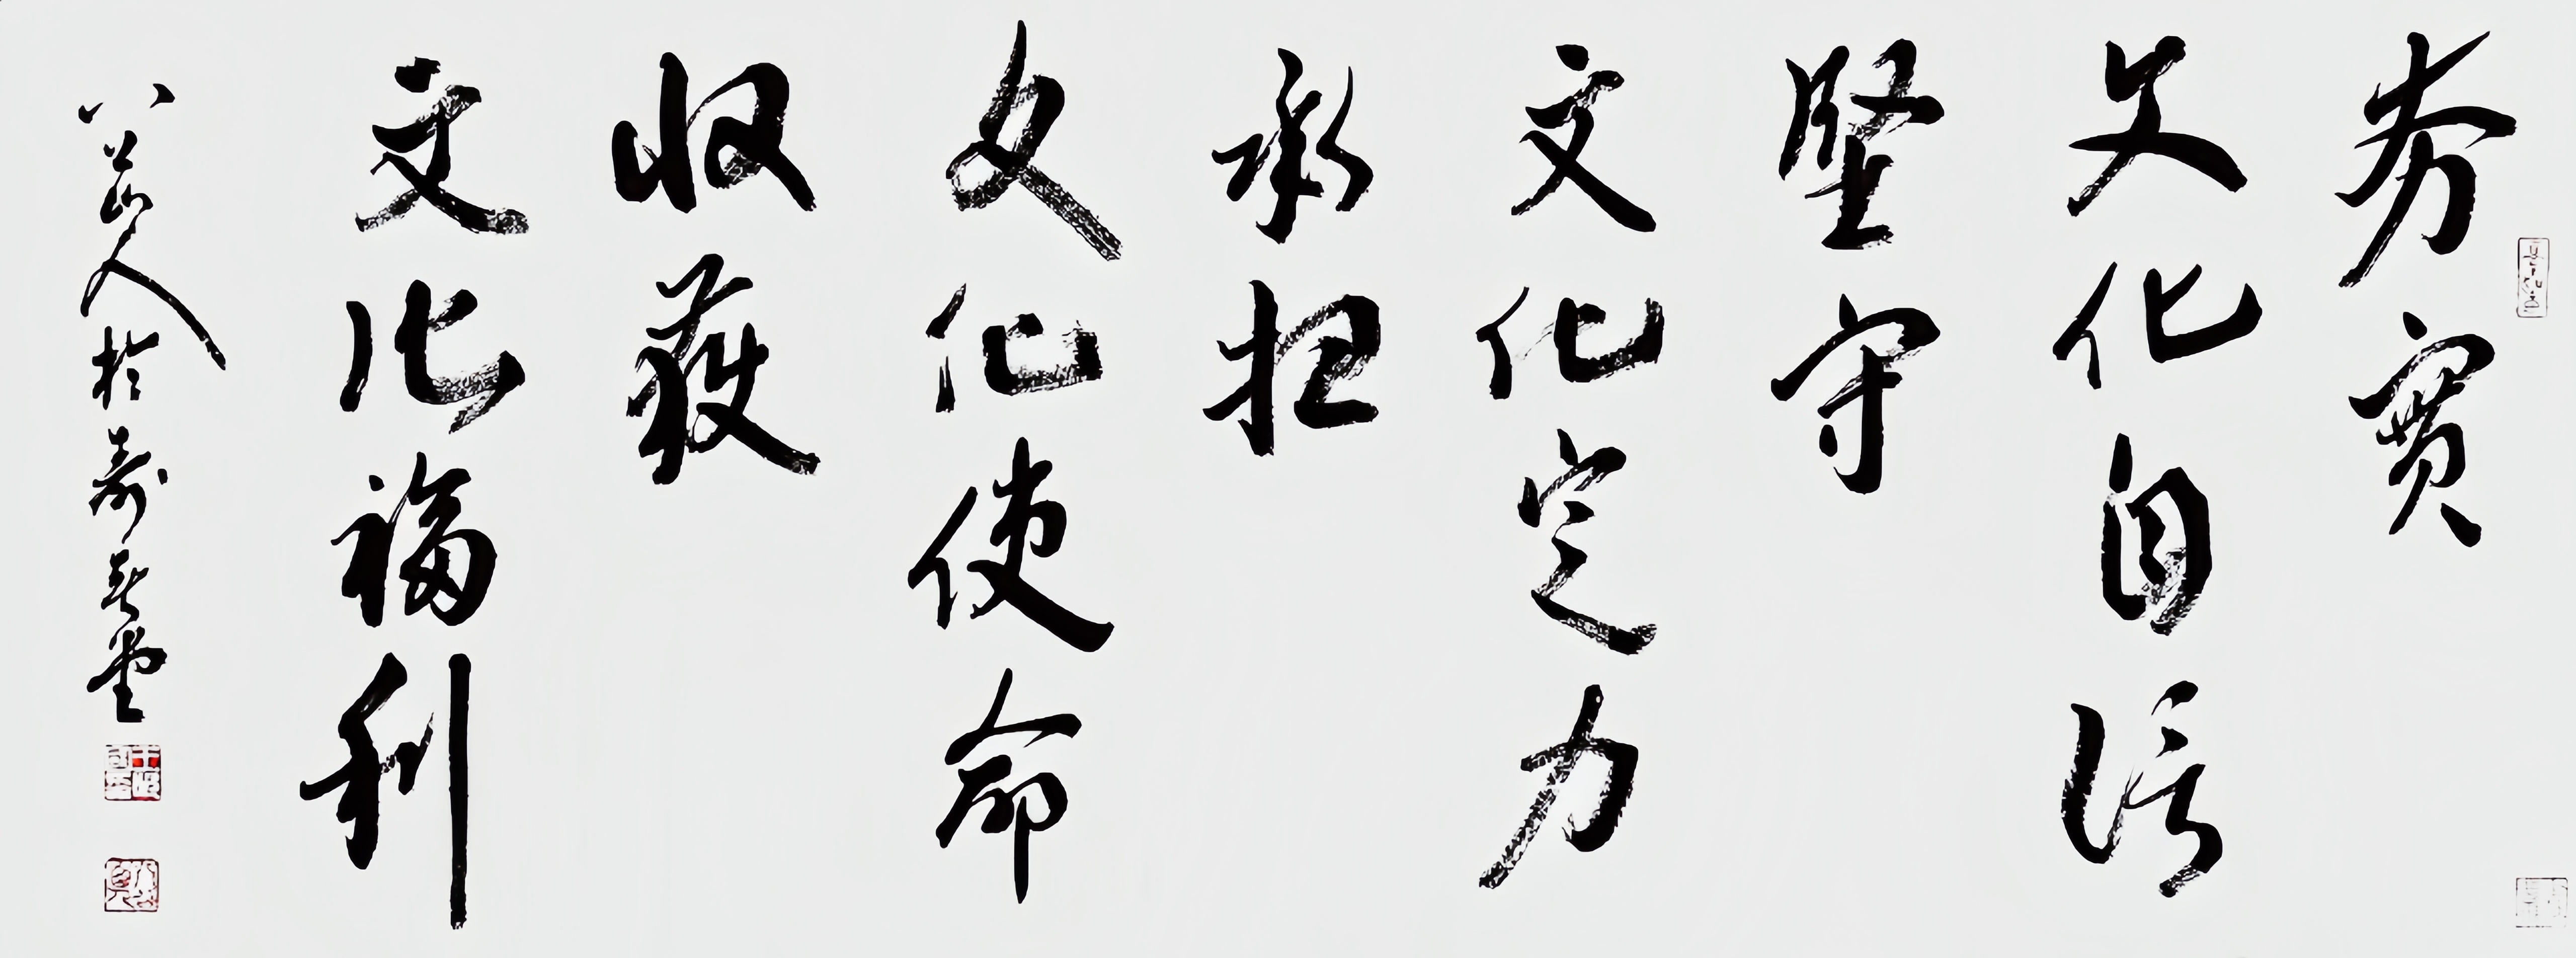 夯實
文化自信
堅守
文化定力
承担
文化使命
收獲
文化福利
八公山人於壽春堂